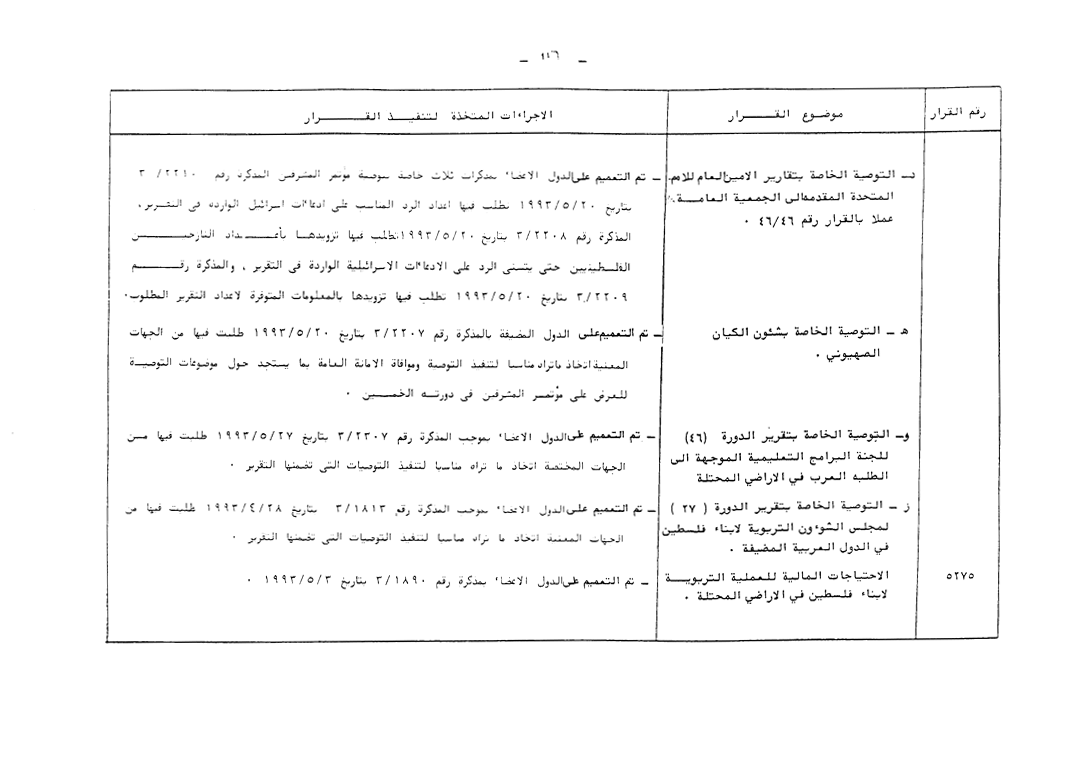 - ١١٦ -
رقم القرار
موضوع القـــرار
الاجراءات المتخذة لتنفيذ القـــرار
د- التوصية الخاصة بتقارير الامين العام للامم
المتحدة المقدمه الى الجمعية العامـة
عملا بالقرار رقم ٤٦/٤٦ .
- تم التعميم على الدول الاعضاء بمذكرات ثلاث خاصة بتوصية مؤتمر المشرفين المذكرة رقم ٣/٢٢١٠
بتاريخ ١٩٩٣/٥/٢٠ تطلب فيها اعداد الرد المناسب على ادعاءات اسرائيل الوارده في التقرير،
المذكرة رقم ٣/٢٢٠٨ بتاريخ ١٩٩٣/٥/٢٠ تطلب فيها تزويدهـا بأعـــداد النازحيـــن
الفلسطينيين حتى يتسنى الرد على الادعاءات الاسرائيلية الواردة في التقرير ، والمذكرة رقـــم
٣/٢٢٠٩ بتاريخ ١٩٩٣/٥/٢٠ تطلب فيها تزويدها بالمعلومات المتوفرة لاعداد التقرير المطلوب.
ه - التوصية الخاصة بشئون الكيان
الصهيوني .
- تم التعميم على الدول المضيفة بالمذكرة رقم ٣/٢٢٠٧ بتاريخ ١٩٩٣/٥/٢٠ طلبت فيها من الجهات
المعنية اتخاذ ماتراه مناسبا لتنفيذ التوصية وموافاة الامانة العامة بما يستجد حول موضوعات التوصيـة
للعرض على مؤتمـر المشرفين في دورتـه الخمسـين .
و- التوصية الخاصة بتقرير الدورة (٤٦)
للجنة البرامج التعليمية الموجهة الى
الطلبه العرب في الاراضي المحتلة
- تم التعميم على الدول الاعضاء بموجب المذكرة رقم ٣/٢٣٠٧ بتاريخ ١٩٩٣/٥/٢٧ طلبت فيها مـن
الجهات المختصة اتخاذ ما تراه مناسبا لتنفيذ التوصيات التي تضمنها التقرير .
ز - التوصية الخاصة بتقرير الدورة ( ٢٧ )
لمجلس الشؤون التربوية لابناء فلسطين
في الدول العربية المضيفة .
- تم التعميم على الدول الاعضاء بموجب المذكرة رقم ٣/١٨١٣ بتاريخ ١٩٩٣/٤/٢٨ طلبت فيها من
الجهات المعنية اتخاذ ما تراه مناسبا لتنفيذ التوصيات التي تضمنها التقرير .
٥٢٧٥
الاحتياجات المالية للعملية التربويـــة
لابناء فلسطين في الاراضي المحتلة .
- تم التعميم على الدول الاعضاء بمذكرة رقم ٣/١٨٩٠ بتاريخ ١٩٩٣/٥/٣ .